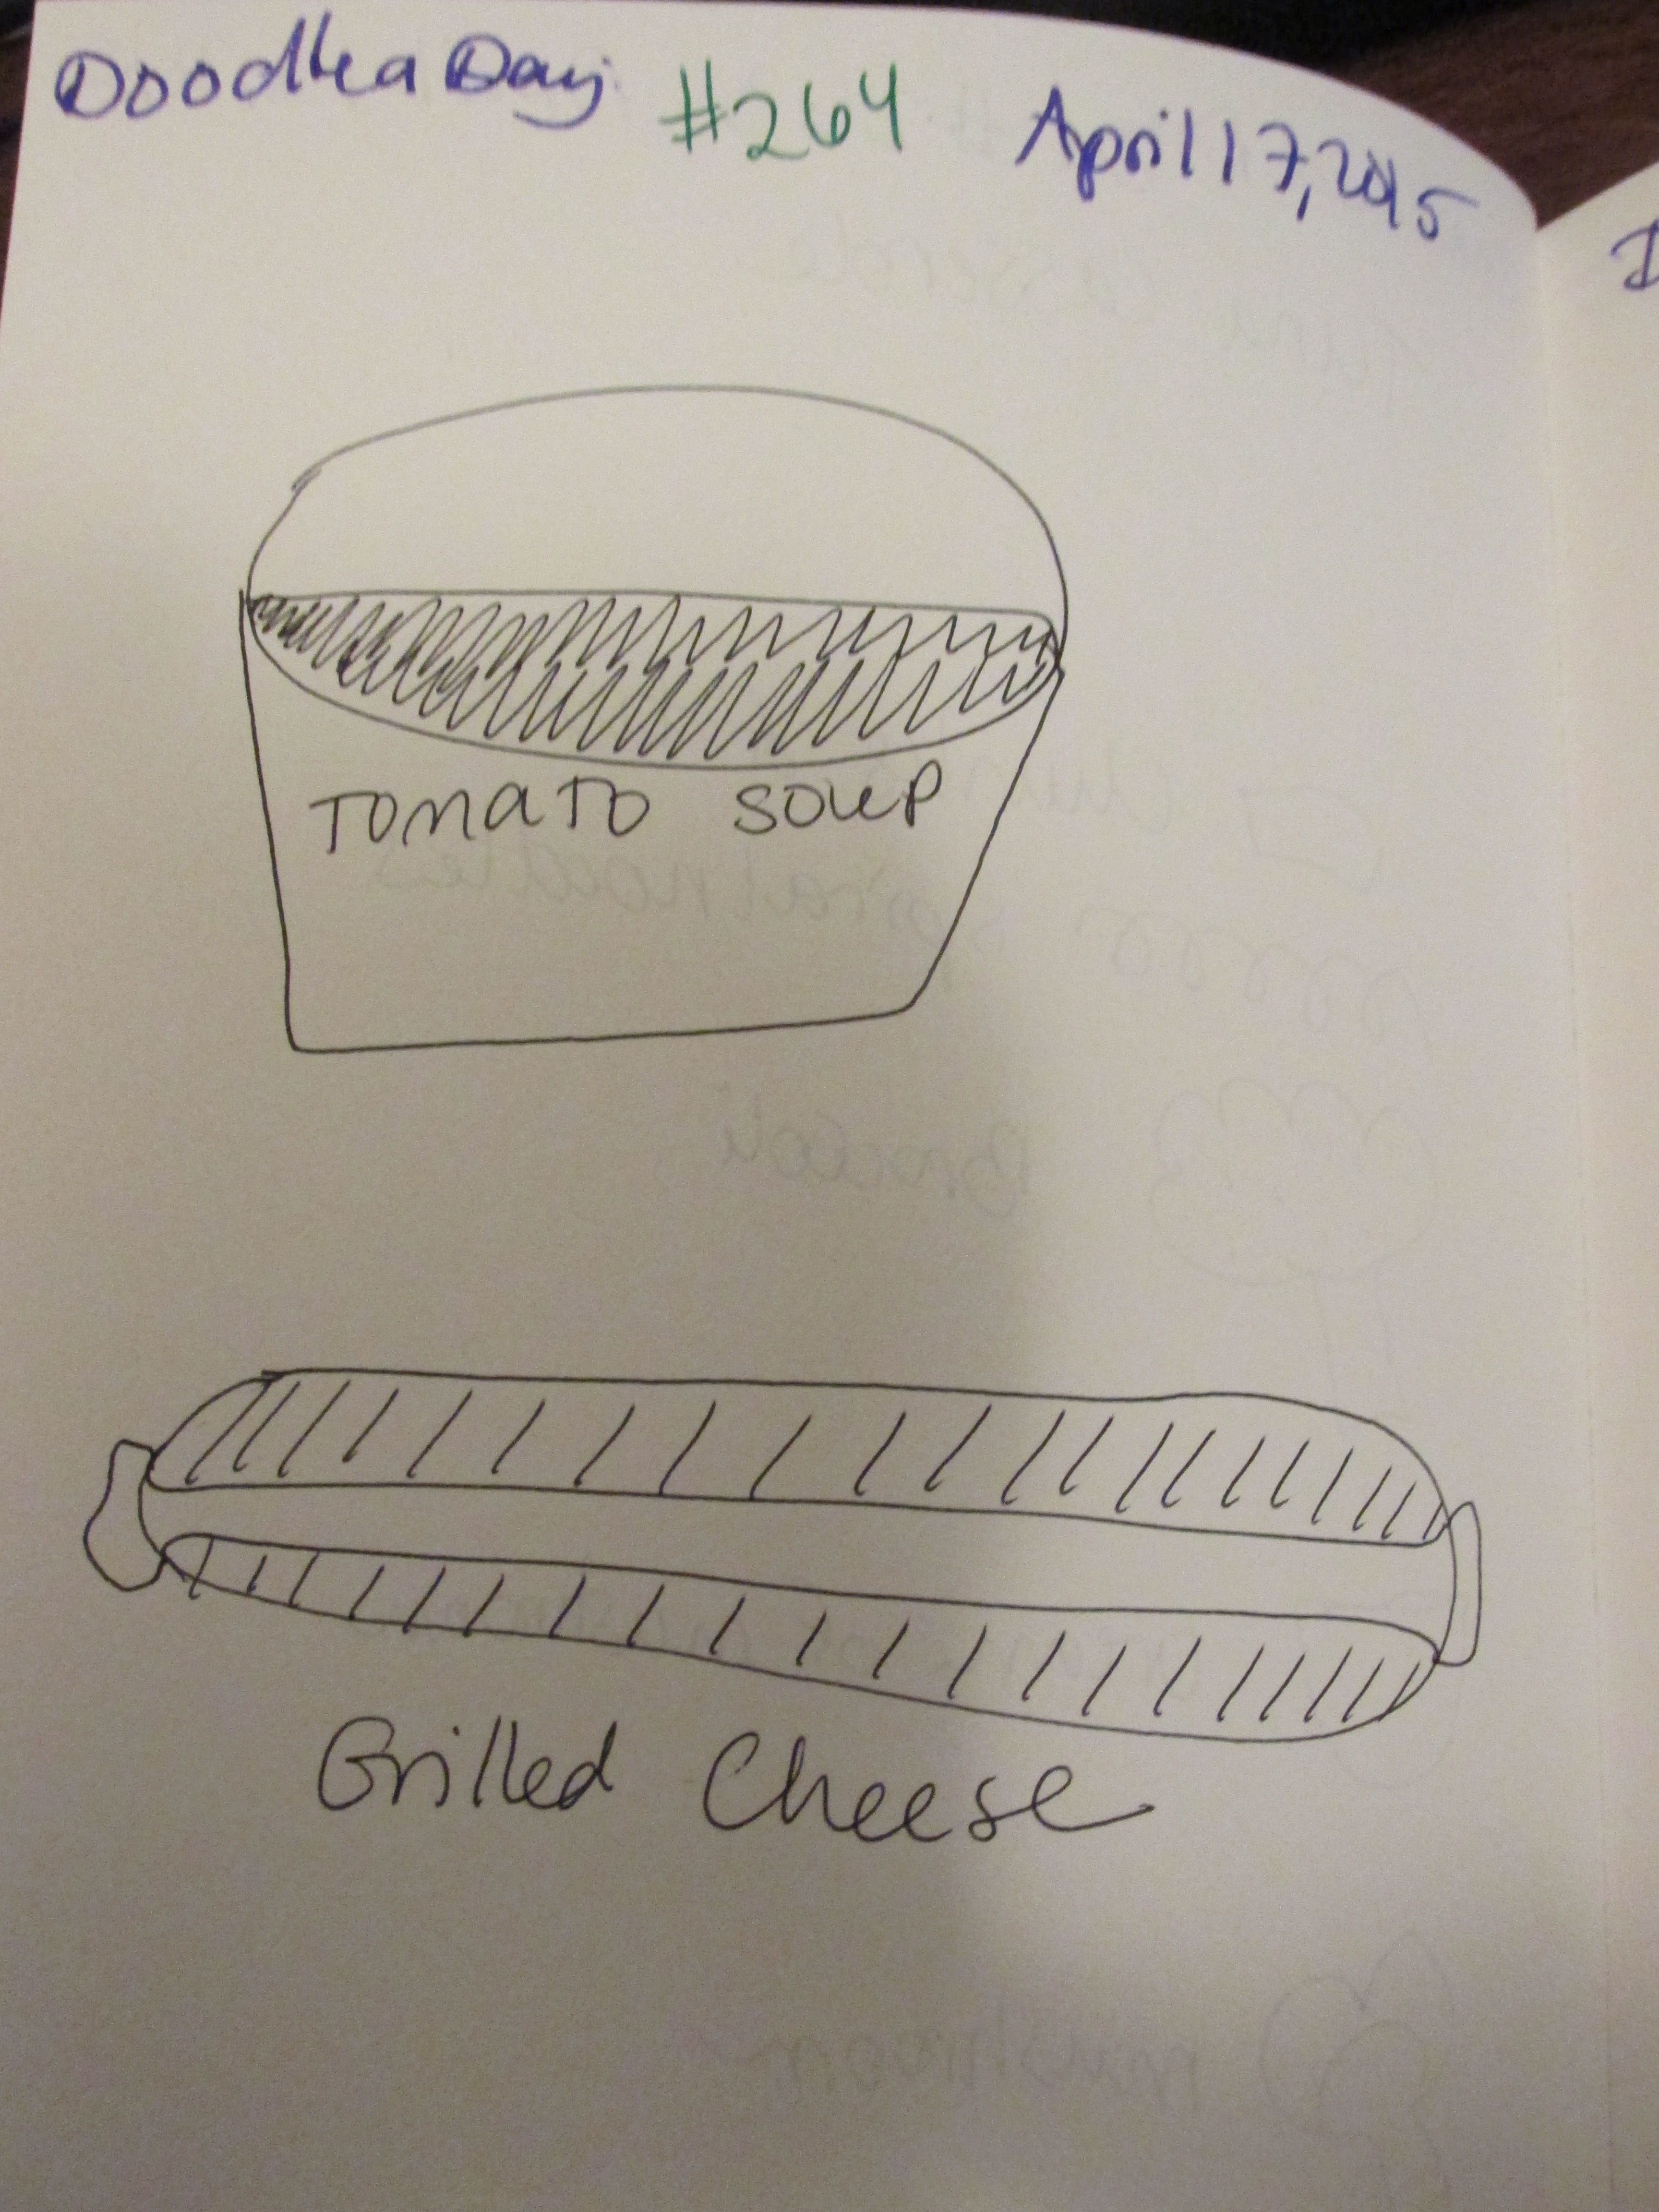 Doodle a Day #264 April 17, 2015
TOMATO SOUP
Grilled Cheese